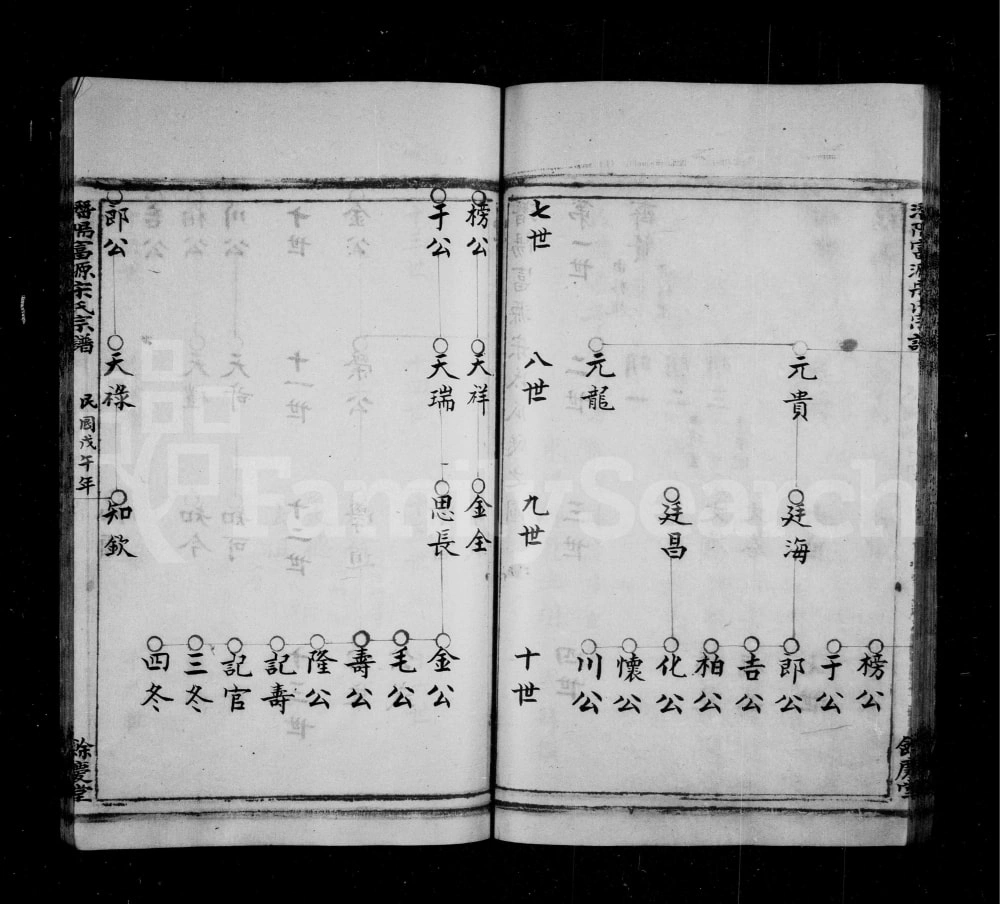 七世
八世
九世
十世
元貴
元龍
廷海
廷昌
榜公
于公
郎公
吉公
柏公
化公
懷公
川公
榜公
于公
郎公
天祥
天瑞
天祿
金全
思長
知欽
金公
毛公
壽公
隆公
記壽
記官
三冬
四冬
富源宋氏宗譜
民國戊午年
餘慶堂
FamilySearch